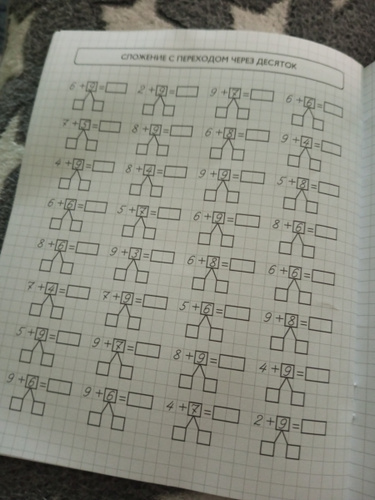 СЛОЖЕНИЕ С ПЕРЕХОДОМ ЧЕРЕЗ ДЕСЯТОК
6 + 9 = 2 + 9 = 9 + 2 = 6 + 6 =
7 + 3 = 8 + 9 = 6 + 8 = 9 + 4 =
4 + 9 = 8 + 4 = 9 + 9 = 5 + 8 =
6 + 6 = 5 + 7 = 6 + 9 = 8 + 6 =
8 + 6 = 9 + 3 = 6 + 8 = 6 + 6 =
7 + 4 = 7 + 9 = 5 + 6 = 9 + 8 =
5 + 9 = 9 + 7 = 8 + 9 = 4 + 9 =
9 + 6 = 9 + 6 = 4 + 7 = 2 + 9 =